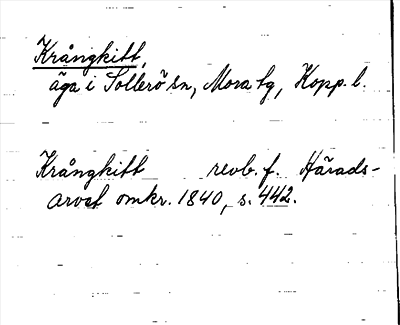 Krångkitt,
äga i Sollerö sn, Mora tg, Kopp. l.
Krångkitt revb. f. Härads-
arvst omkr. 1840, s. 442.